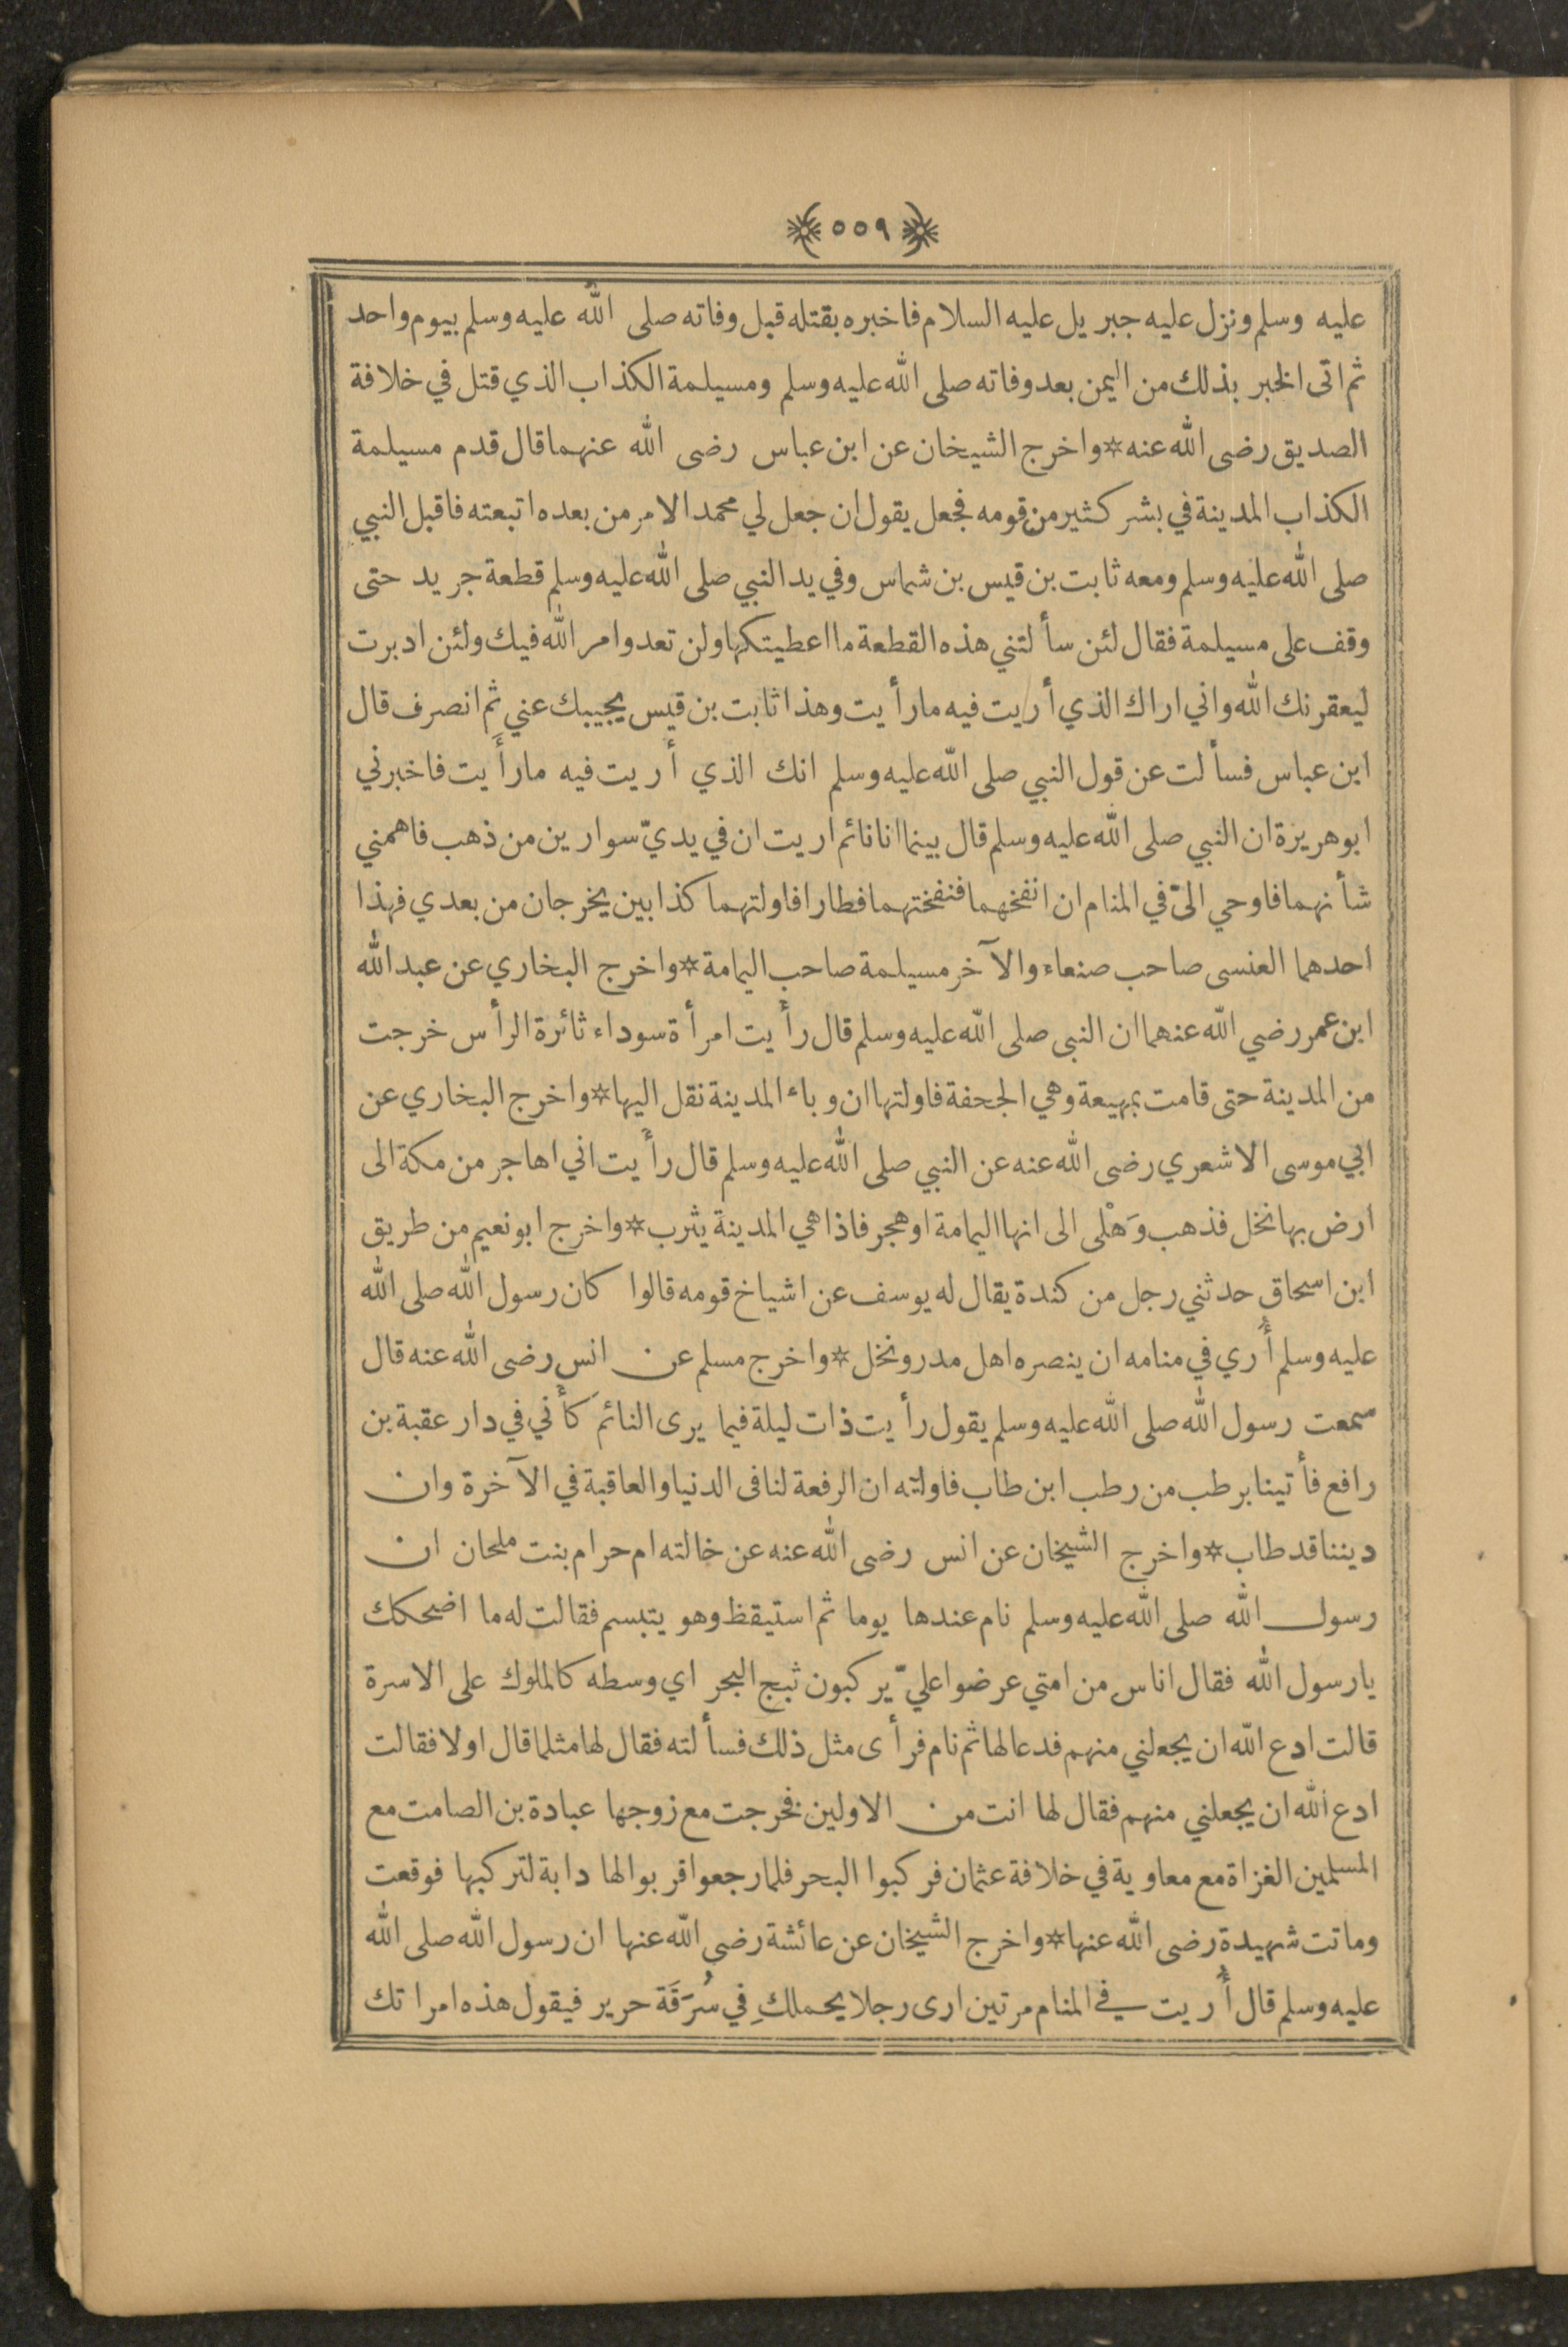 ﴿٥٥٩﴾
عليه وسلم ونزل عليه جبريل عليه السلام فاخبره بقتله قبل وفاته صلى الله عليه وسلم بيوم واحد
ثم اتى الخبر بذلك من اليمن بعد وفاته صلى الله عليه وسلم ومسيلمة الكذاب الذي قتل في خلافة
الصديق رضى الله عنه * واخرج الشيخان عن ابن عباس رضى الله عنهما قال قدم مسيلمة
الكذاب المدينة في بشر كثير من قومه فجعل يقول ان جعل لي محمد الامر من بعده اتبعته فاقبل النبي
صلى الله عليه وسلم ومعه ثابت بن قيس بن شماس وفي يد النبي صلى الله عليه وسلم قطعة جريد حتى
وقف على مسيلمة فقال لئن سألتني هذه القطعة ما اعطيتكها ولن تعدوامر الله فيك ولئن ادبرت
ليعقرنك الله واني اراك الذي أريت فيه ما رأيت وهذا ثابت بن قيس يجيبك عني ثم انصرف قال
ابن عباس فسألت عن قول النبي صلى الله عليه وسلم انك الذي أريت فيه ما رأيت فاخبرني
ابو هريرة ان النبي صلى الله عليه وسلم قال بينما انا نائم اريت ان في يديّ سوارين من ذهب فاهمني
شأنهما فاوحي اليّ في المنام ان انفخهما فنفختهما فطارا فاولتهما كذابين يخرجان من بعدي فهذا
احدهما العنسى صاحب صنعاء والآخر مسيلمة صاحب اليمامة * واخرج البخاري عن عبد الله
ابن عمر رضي الله عنهما ان النبى صلى الله عليه وسلم قال رأيت امرأة سوداء ثائرة الرأس خرجت
من المدينة حتى قامت بمهيعة وهي الجحفة فاولتها ان وباء المدينة نقل اليها * واخرج البخاري عن
ابي موسى الاشعري رضى الله عنه عن النبي صلى الله عليه وسلم قال رأيت اني اهاجر من مكة الى
ارض بها نخل فذهب وَهْلى الى انها اليمامة او هجر فاذا هي المدينة يثرب * واخرج ابو نعيم من طريق
ابن اسحاق حدثني رجل من كندة يقال له يوسف عن اشياخ قومه قالوا كان رسول الله صلى الله
عليه وسلم أُري في منامه ان ينصره اهل مدر ونخل * واخرج مسلم عن انس رضى الله عنه قال
سمعت رسول الله صلى الله عليه وسلم يقول رأيت ذات ليلة فيما يرى النائم كأني في دار عقبة بن
رافع فأتينا برطب من رطب ابن طاب فاولته ان الرفعة لنا فى الدنيا والعاقبة في الآخرة وان
ديننا قد طاب * واخرج الشيخان عن انس رضى الله عنه عن خالته ام حرام بنت ملحان ان
رسول الله صلى الله عليه وسلم نام عندها يوما ثم استيقظ وهو يتبسم فقالت له ما اضحكك
يا رسول الله فقال اناس من امتي عرضوا عليّ يركبون ثبج البحر اي وسطه كالملوك على الاسرة
قالت ادع الله ان يجعلني منهم فدعا لها ثم نام فرأى مثل ذلك فسألته فقال لها مثلما قال اولا فقالت
ادع الله ان يجعلني منهم فقال لها انت من الاولين فخرجت مع زوجها عبادة بن الصامت مع
المسلمين الغزاة مع معاوية في خلافة عثمان فركبوا البحر فلما رجعوا قربوا لها دابة لتركبها فوقعت
وماتت شهيدة رضى الله عنها * واخرج الشيخان عن عائشة رضى الله عنها ان رسول الله صلى الله
عليه وسلم قال أُريت في المنام مرتين ارى رجلا يحملكِ في سُرَقَة حرير فيقول هذه امراتك